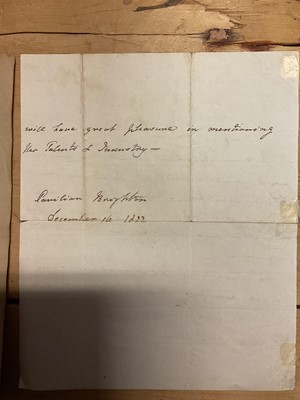 will have great pleasure in mentioning
her Talents & Industry —
Pavilion Brighton
December 14 1832